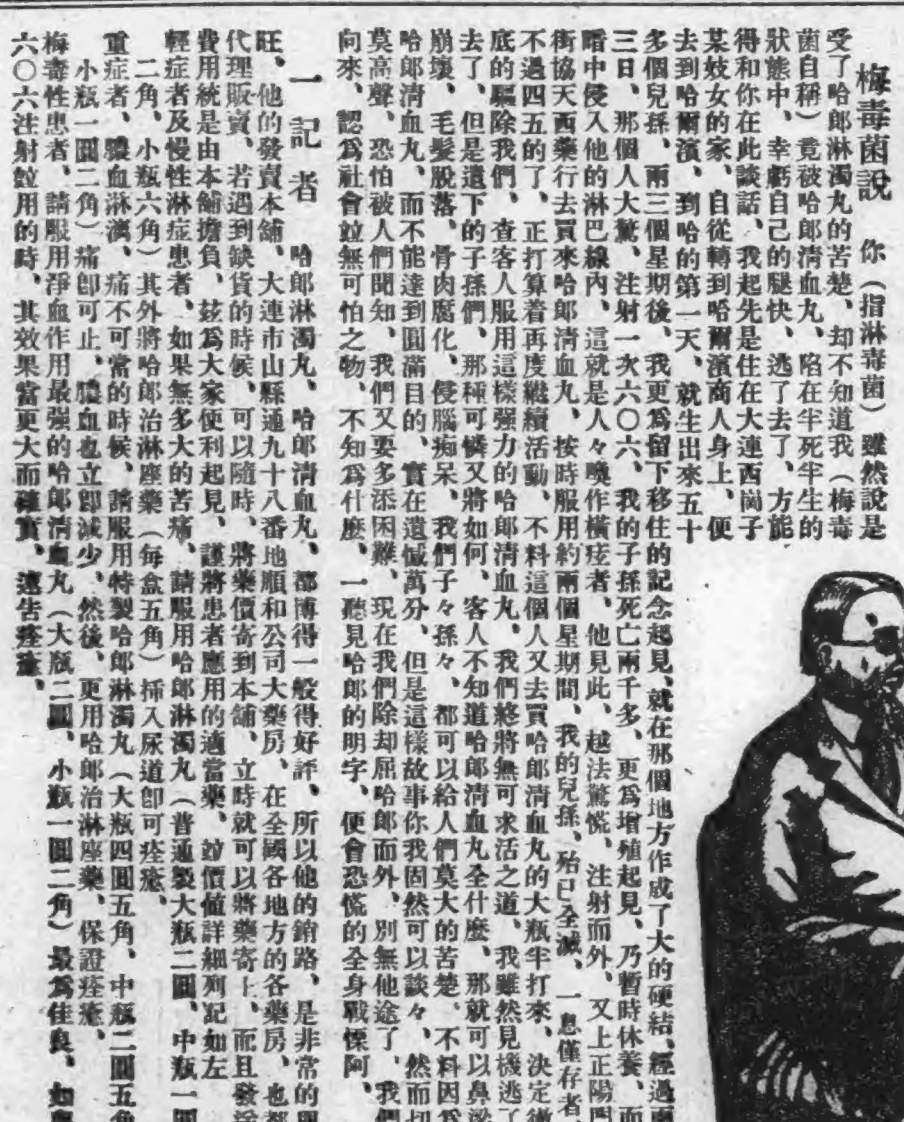 梅毒菌說　你（指淋毒菌）雖然說是
受了哈郎淋濁丸的苦楚、却不知道我（梅毒
菌自稱）竟被哈郎淸血丸、陷在半死半生的
狀態中、幸虧自己的腿快、逃了去了、方能
得和你在此談話、我起先是住在大連西崗子
某妓女的家、自從轉到哈爾濱商人身上、便
去到哈爾濱、到哈的第一天、就生出來五十
多個兒孫、兩三個星期後、我更爲留下移住的記念起見、就在那個地方作成了大的硬結、經過兩
三日、那個人大驚、注射一次六〇六、我的子孫死亡兩千多、更爲增殖起見、乃暫時休養、而
暗中侵入他的淋巴線內、這就是人々喚作橫痃者、他見此、越法驚慌、注射而外、又上正陽門
街協天西藥行去買來哈郎淸血丸、按時服用約兩個星期間、我的兒孫、殆已全滅、一息僅存者、
不過四五的了、正打算着再度繼續活動、不料這個人又去買哈郎淸血丸的大瓶半打來、決定徹
底的驅除我們、查客人服用這樣强力的哈郎淸血丸、我們終將無可求活之道、我雖然見機逃了
去了、但是遺下的子孫們、那種可憐又將如何、客人不知道哈郎淸血丸全什麼、那就可以鼻梁
崩壞、毛髮脫落、骨肉腐化、侵腦痴呆、我們子々孫々、都可以給人們莫大的苦楚、不料因爲
哈郎淸血丸、而不能達到圓滿目的、實在遺憾萬分、但是這樣故事你我固然可以談々、然而切
莫高聲、恐怕被人們聞知、我們又要多添困難、現在我們除却屈哈郎而外、別無他途了、我們
向來、認爲社會並無可怕之物、不知爲什麼、一聽見哈郎的明字、便會恐慌的全身戰慄阿、
一　記　者　哈郎淋濁丸、哈郎淸血丸、都博得一般得好評、所以他的銷路、是非常的興
旺、他的發賣本舖、大連市山縣通九十八番地順和公司大藥房、在全國各地方的各藥房、也都
代理販賣、若遇到缺貨的時候、可以隨時、將藥價寄到本舖、立時就可以將藥寄上、而且發送
費用統是由本舖擔負、茲爲大家便利起見、謹將患者應用的適當藥、並價値詳細列記如左
輕症者及慢性淋症患者、如果無多大的苦痛、請服用哈郎淋濁丸（普通製大瓶二圓、中瓶一圓
二角、小瓶六角）其外將哈郎治淋座藥（每盒五角）揷入尿道卽可痊癒、
重症者、膿血淋漓、痛不可當的時候、請服用特製哈郎淋濁丸（大瓶四圓五角、中瓶二圓五角
小瓶一圓二角）痛卽可止、膿血也立卽減少、然後、更用哈郎治淋座藥、保證痊癒、
梅毒性患者、請服用淨血作用最强的哈郎淸血丸（大瓶二圓、小瓶一圓二角）最爲佳良、如與
六〇六注射並用的時、其效果當更大而確實、速告痊癒、